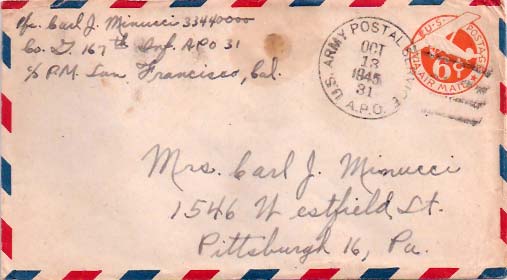 Pfc. Carl J. Minucci 33440000
Co. I. 167th Inf. APO 31
c/o P.M. San Francisco, Cal.
U.S. ARMY POSTAL SERVICE
OCT
13
1945
31
A.P.O.
U.S. POSTAGE
6¢
VIA AIR MAIL
Mrs. Carl J. Minucci
1546 Westfield St.
Pittsburgh 16, Pa.